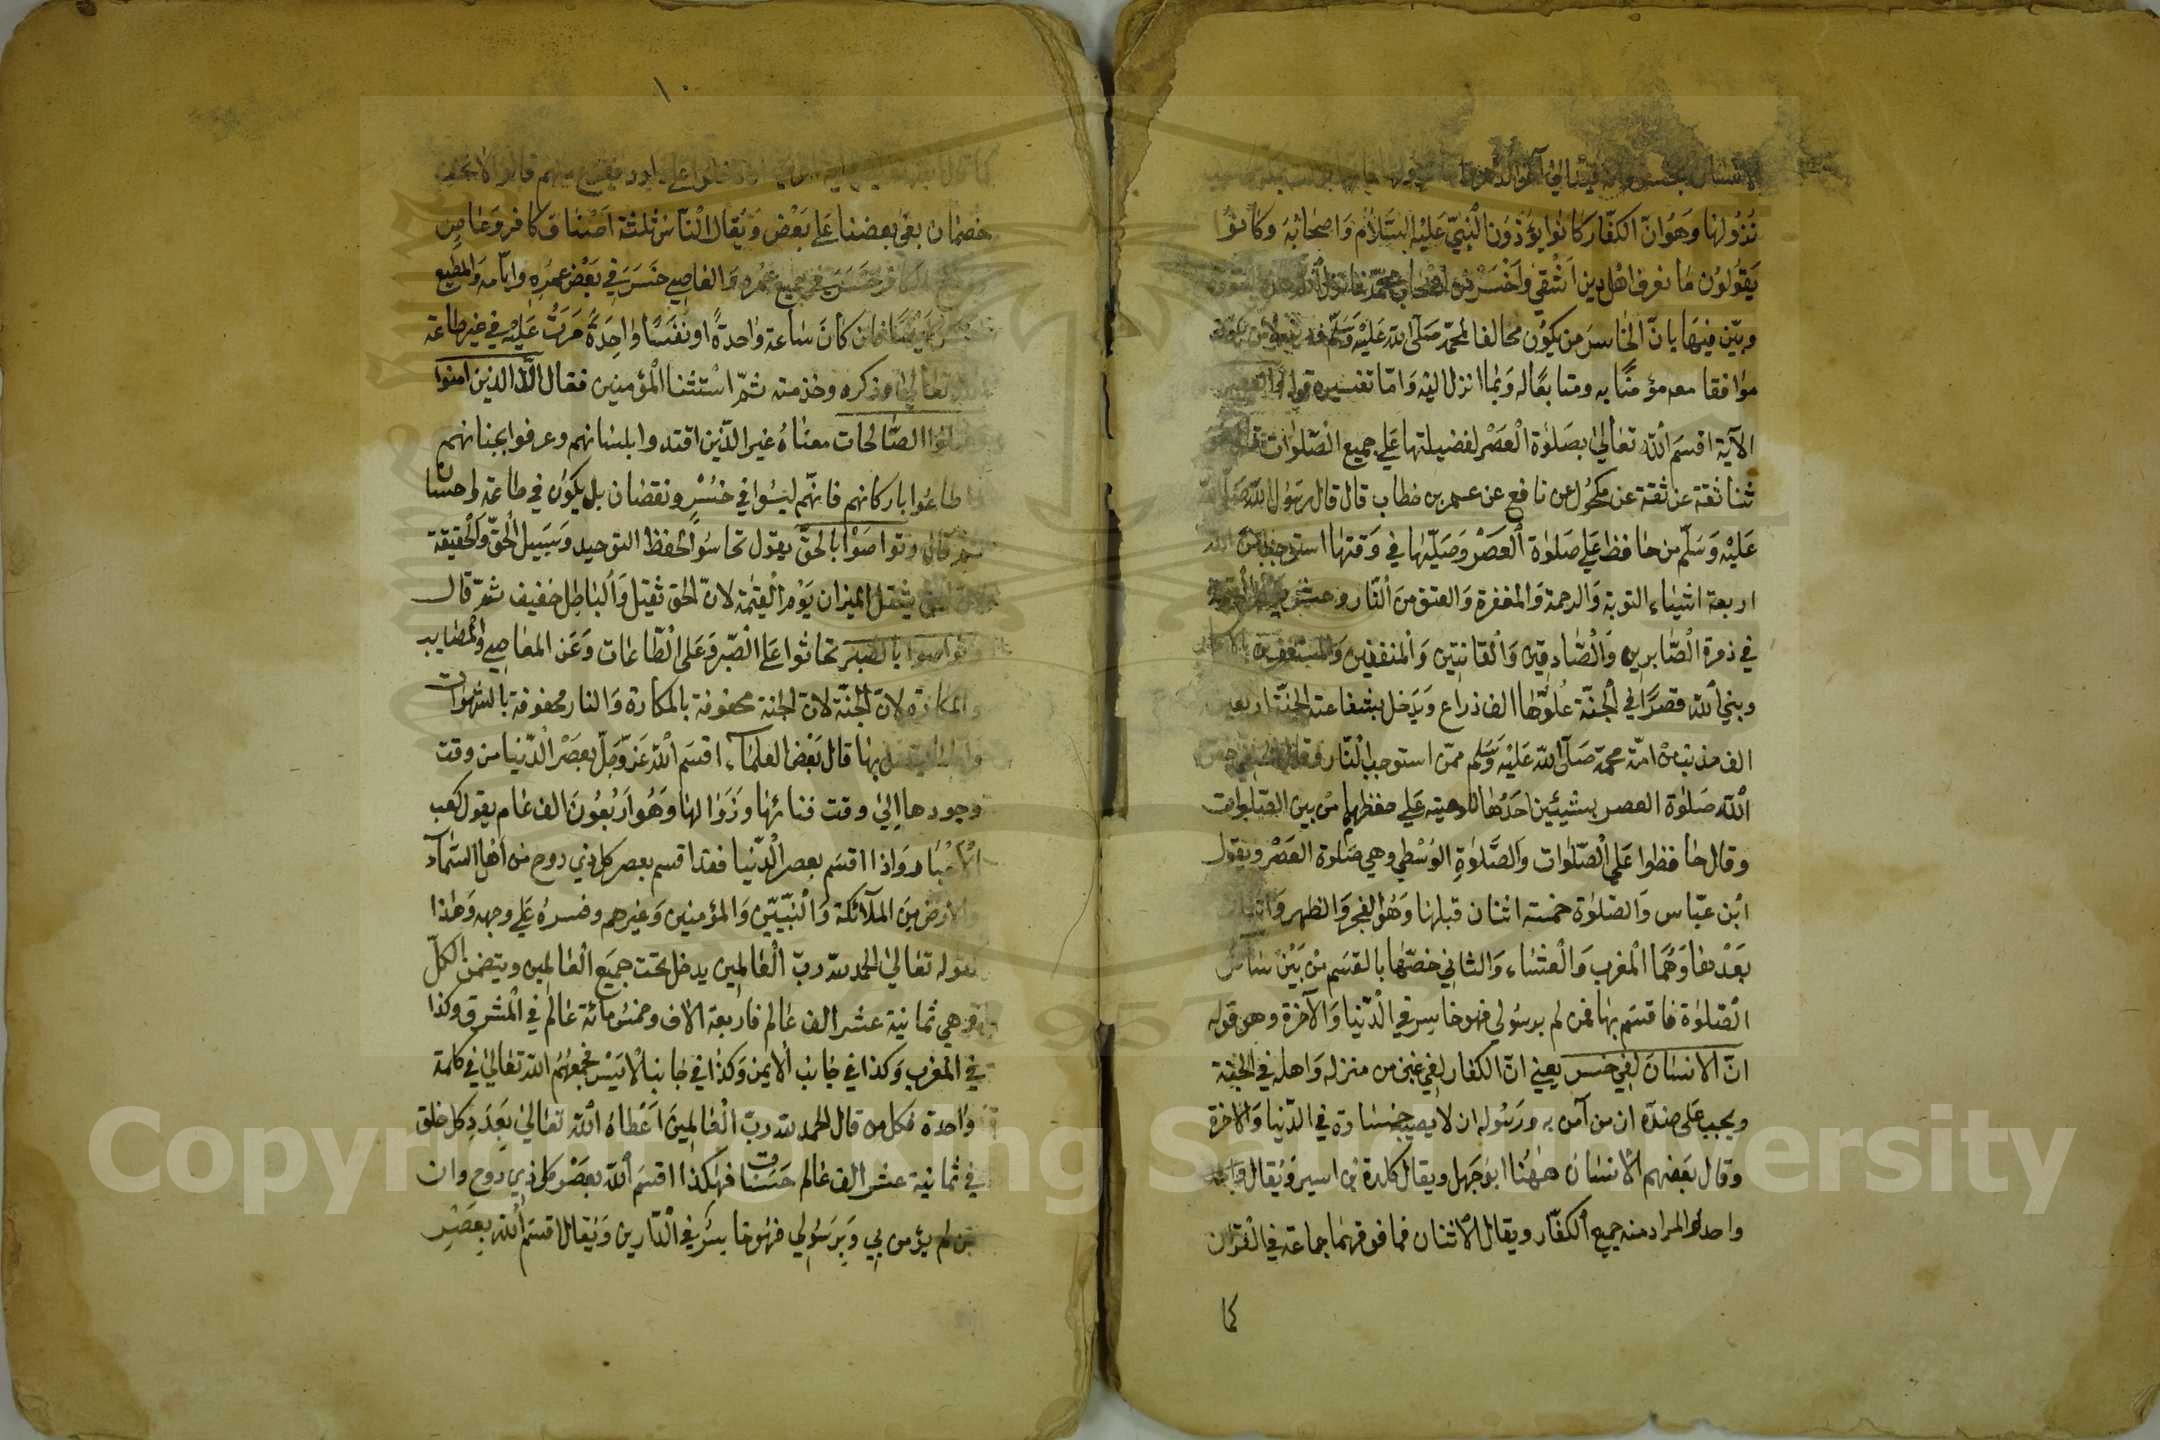 نزولها وهو ان الكفار كانوا يؤذون النبي عليه السلام واصحابه وكانوا
يقولون ما نعرف اهل دين اشقى واخسر من اصحاب محمد فانزل الله هذه
وبين فيها بان الخاسر من يكون مخالفا لمحمد صلى الله عليه وسلم
موافقا معه مؤمنا به ومتابعا له وبما انزل اليه واما تفسيره قوله والعصر
الآية اقسم الله تعالى بصلوة العصر لفضيلتها على جميع الصلوات
ثنا ثقة عن ثقة عن مكحول عن نافع عن عمر بن خطاب قال قال رسول الله صلى الله
عليه وسلم من حافظ على صلوة العصر وصليها في وقتها استوجب من الله
اربعة اشياء التوبة والرحمة والمغفرة والعتق من النار وحشر يوم القيمة
في زمرة الصابرين والصادقين والقانتين والمنفقين والمستغفرين بالاسحار
وبني الله قصرا في الجنة علوها الف ذراع ويدخل بشفاعته الجنة اربعين
الف مذنب من امة محمد صلى الله عليه وسلم ممن استوجب النار
الله صلوة العصر بشيئين احدها للوصية على حفظها من بين الصلوات
وقال حافظوا على الصلوات والصلوة الوسطى وهي صلوة العصر ويقول
ابن عباس والصلوة خمسة اثنان قبلها وهو الفجر والظهر واثنان
بعدها وهما المغرب والعشاء والثاني خصها بالقسم من بين سائر
الصلوة فاقسم بها فمن لم برسولي فهو خاسر في الدنيا والآخرة وهو قوله
ان الانسان لفي خسر يعني ان الكفار لفي غبن من منزله واهله في الجنة
ويجب على ضده ان من آمن به ورسوله ان لا يصيب خسارة في الدنيا والاخرة
وقال بعضهم الانسان ههنا ابو جهل ويقال كلدة بن اسير ويقال
واحد والمراد منه جميع الكفار ويقال الاثنان فما فوقهما جماعة في القران
كما
١٠
خصمان بغى بعضنا على بعض ويقال الناس ثلثة اصناف كافر وعاص
ومطيع فالكافر خسر في جميع عمره والعاصي خسر في بعض عمره وايامه والمطيع
فان كان ساعة واحدة او نفسا واحدة مرت عليه في غير طاعة
الله تعالى وذكره وخدمته ثم استثنا المؤمنين فقال الا الذين امنوا
وعملوا الصالحات معناه غير الذين اقتدوا بلسانهم وعرفوا بجنانهم
واطاعوا باركانهم فانهم ليسوا في خسر ونقصان بل يكون في طاعة واحسان
ثم قال وتواصوا بالحق يقول تحاسوا لحفظ التوحيد وسبيل الحق والحقيقة
يثقل الميزان يوم القيمة لان الحق ثقيل والباطل خفيف ثم قال
وتواصوا بالصبر تحاثوا على الصبر وعلى الطاعات وعن المعاصي والمصايب
والمكاره لان الجنة لان الجنة محفوفة بالمكارة والنار محفوفة بالشهوات
بها قال بعض العلماء اقسم الله عز وجل بعصر الدنيا من وقت
وجودها الى وقت فنائها وزوالها وهو اربعون الف عام يقول كعب
الاحبار واذا اقسم بعصر الدنيا فقد اقسم بعصر كل ذي روح من اهل السماء
والارض من الملآئكة والنبيين والمؤمنين وغيرهم وفسره على وجهه وهذا
كقوله تعالى الحمد لله رب العالمين يدخل تحت جميع العالمين ويتضمن الكل
وهي ثمانية عشر الف عالم فاربعة الاف وخمس مائة عالم في المشرق وكذا
في المغرب وكذا في جانب الايمن وكذا في جانب الايسر فجمعهم الله تعالى في كلمة
واحدة فكل من قال الحمد لله رب العالمين اعطاه الله تعالى بعدد كل خلق
في ثمانية عشر الف عالم حسنات فهكذا اقسم الله بعصر كل ذي روح وان
من لم يؤمن بي وبرسولي فهو خاسر في الدارين ويقال اقسم الله بعصر
Copyright © King Saud University